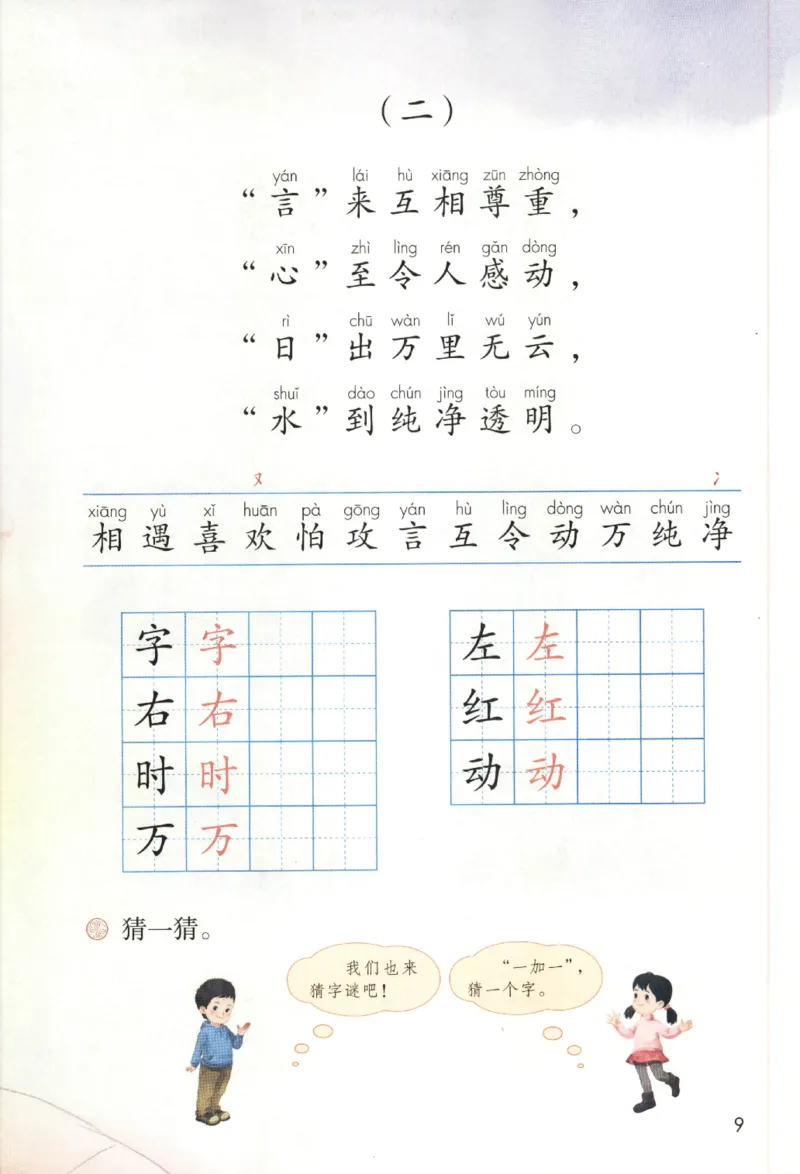 （二）
yán lái hù xiāng zūn zhòng
“言”来互相尊重，
xīn zhì lìng rén gǎn dòng
“心”至令人感动，
rì chū wàn lǐ wú yún
“日”出万里无云，
shuǐ dào chún jìng tòu míng
“水”到纯净透明。
又 冫
xiāng yù xǐ huān pà gōng yán hù lìng dòng wàn chún jìng
相遇喜欢怕攻言互令动万纯净
字字 左左
右右 红红
时时 动动
万万
猜一猜。
我们也来
猜字谜吧！
“一加一”，
猜一个字。
9